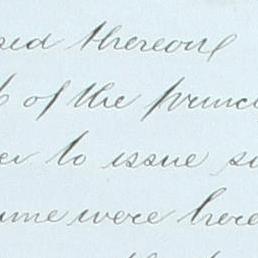 sed thereon
of the princ
er to issue s
ame were here